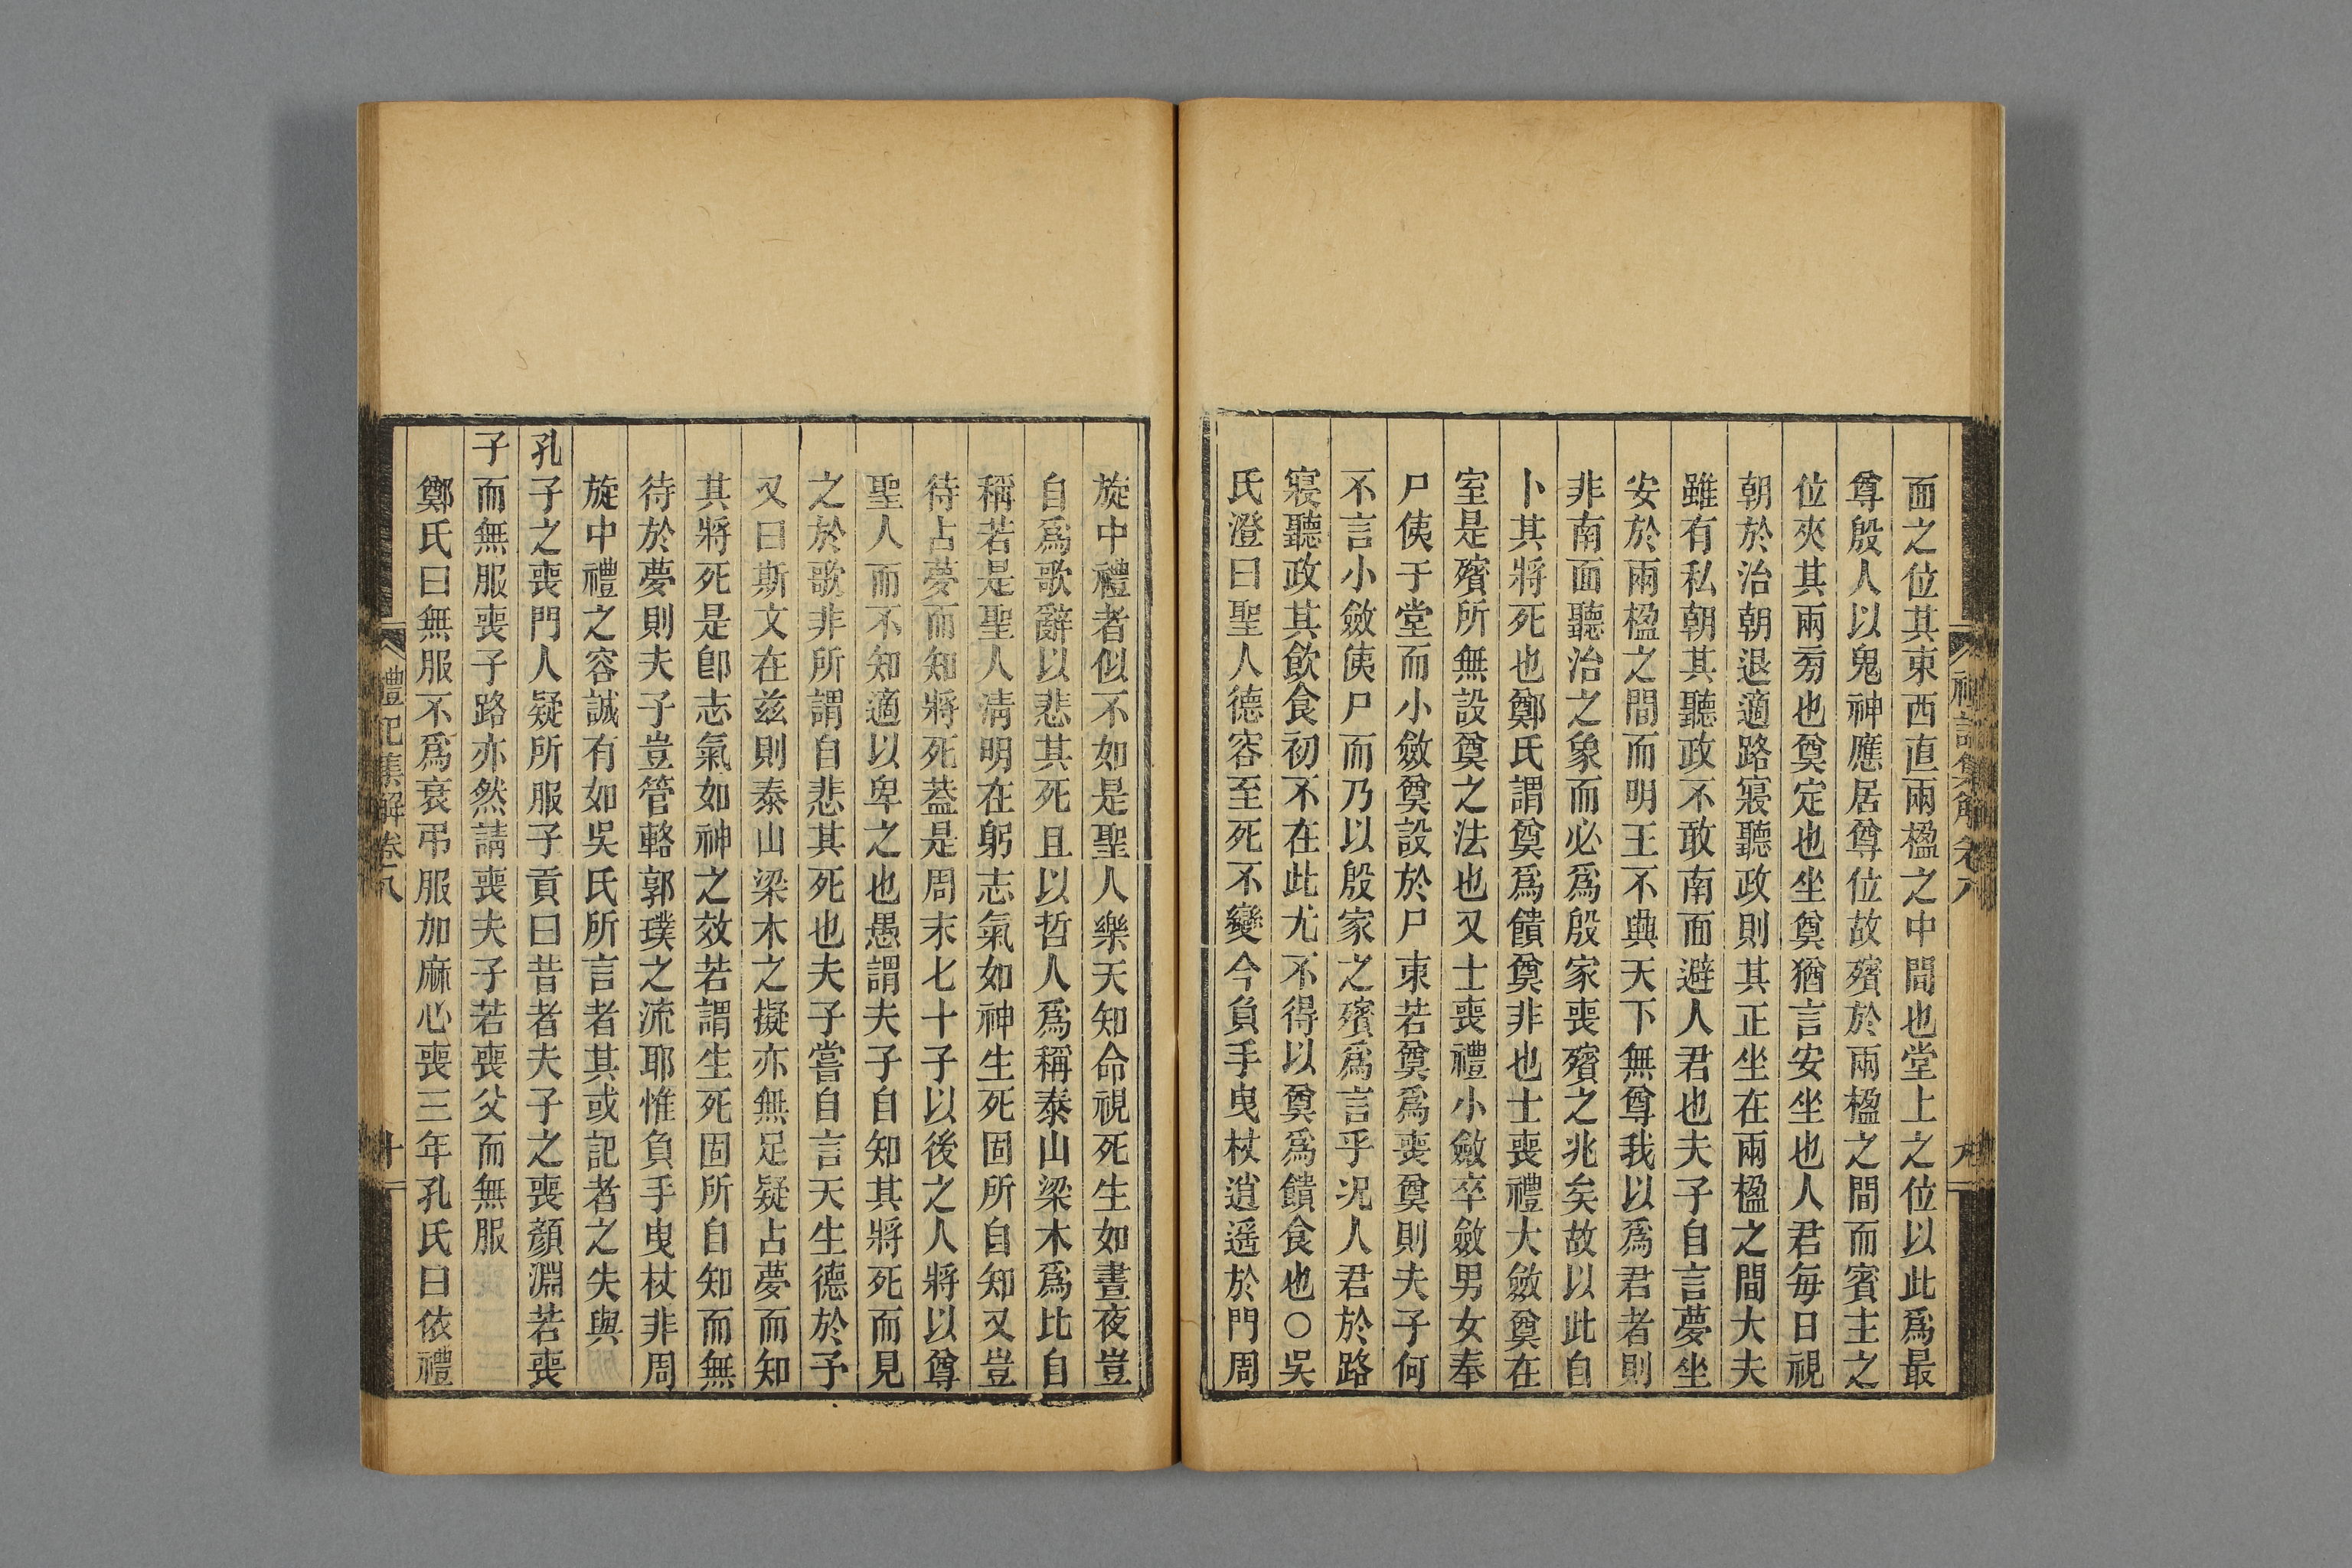 面之位其東西直兩楹之中間也堂上之位以此爲最
尊殷人以鬼神應居尊位故殯於兩楹之間而賓主之
位夾其兩旁也奠定也坐奠猶言安坐也人君每日視
朝於治朝退適路寢聽政則其正坐在兩楹之間大夫
雖有私朝其聽政不敢南面避人君也夫子自言夢坐
安於兩楹之間而明王不興天下無尊我以爲君者則
非南面聽治之象而必爲殷家喪殯之兆矣故以此自
卜其將死也鄭氏謂奠爲饋奠非也士喪禮大斂奠在
室是殯所無設奠之法也又士喪禮小斂卒斂男女奉
尸侇于堂而小斂奠設於尸東若奠爲喪奠則夫子何
不言小斂侇尸而乃以殷家之殯爲言乎況人君於路
寢聽政其飲食初不在此尤不得以奠爲饋食也○吳
氏澄曰聖人德容至死不變今負手曳杖逍遥於門周
禮記集解卷八
九
旋中禮者似不如是聖人樂天知命視死生如晝夜豈
自爲歌辭以悲其死且以哲人爲稱泰山梁木爲比自
稱若是聖人淸明在躬志氣如神生死固所自知又豈
待占夢而知將死葢是周末七十子以後之人將以尊
聖人而不知適以卑之也愚謂夫子自知其將死而見
之於歌非所謂自悲其死也夫子嘗自言天生德於予
又曰斯文在兹則泰山梁木之擬亦無足疑占夢而知
其將死是卽志氣如神之效若謂生死固所自知而無
待於夢則夫子豈管輅郭璞之流耶惟負手曳杖非周
旋中禮之容誠有如吳氏所言者其或記者之失與
孔子之喪門人疑所服子貢曰昔者夫子之喪顏淵若喪
子而無服喪子路亦然請喪夫子若喪父而無服
鄭氏曰無服不爲衰弔服加麻心喪三年孔氏曰依禮
禮記集解卷八
十